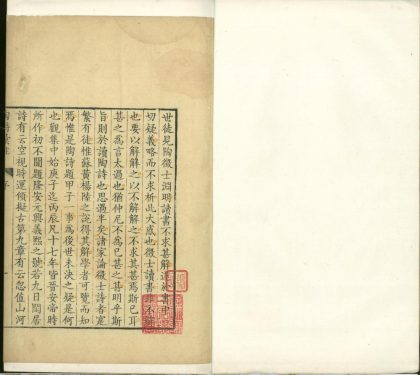 世徒見陶徵士淵明讀書不求甚解遂於書中
切疑義略而不求析此大惑也徵士讀書非不解
也要以解解之以不解解之不求其甚焉斯已耳
甚之為言太過也猶仲尼不為已甚之甚明乎斯
旨則於讀陶詩也思過半矣諸家論徵士詩者寔
繁有徒惟蘇黃楊陸之說得其解學者可覽而知
焉惟是陶詩題甲子一事為後世未決之疑是何
也觀集中始庚子迄丙辰凡十七年皆晉安帝時
所作初不關題隆安元興義熙之號若九日閒居
詩有云空視時運傾擬古第九章有云忽值山河